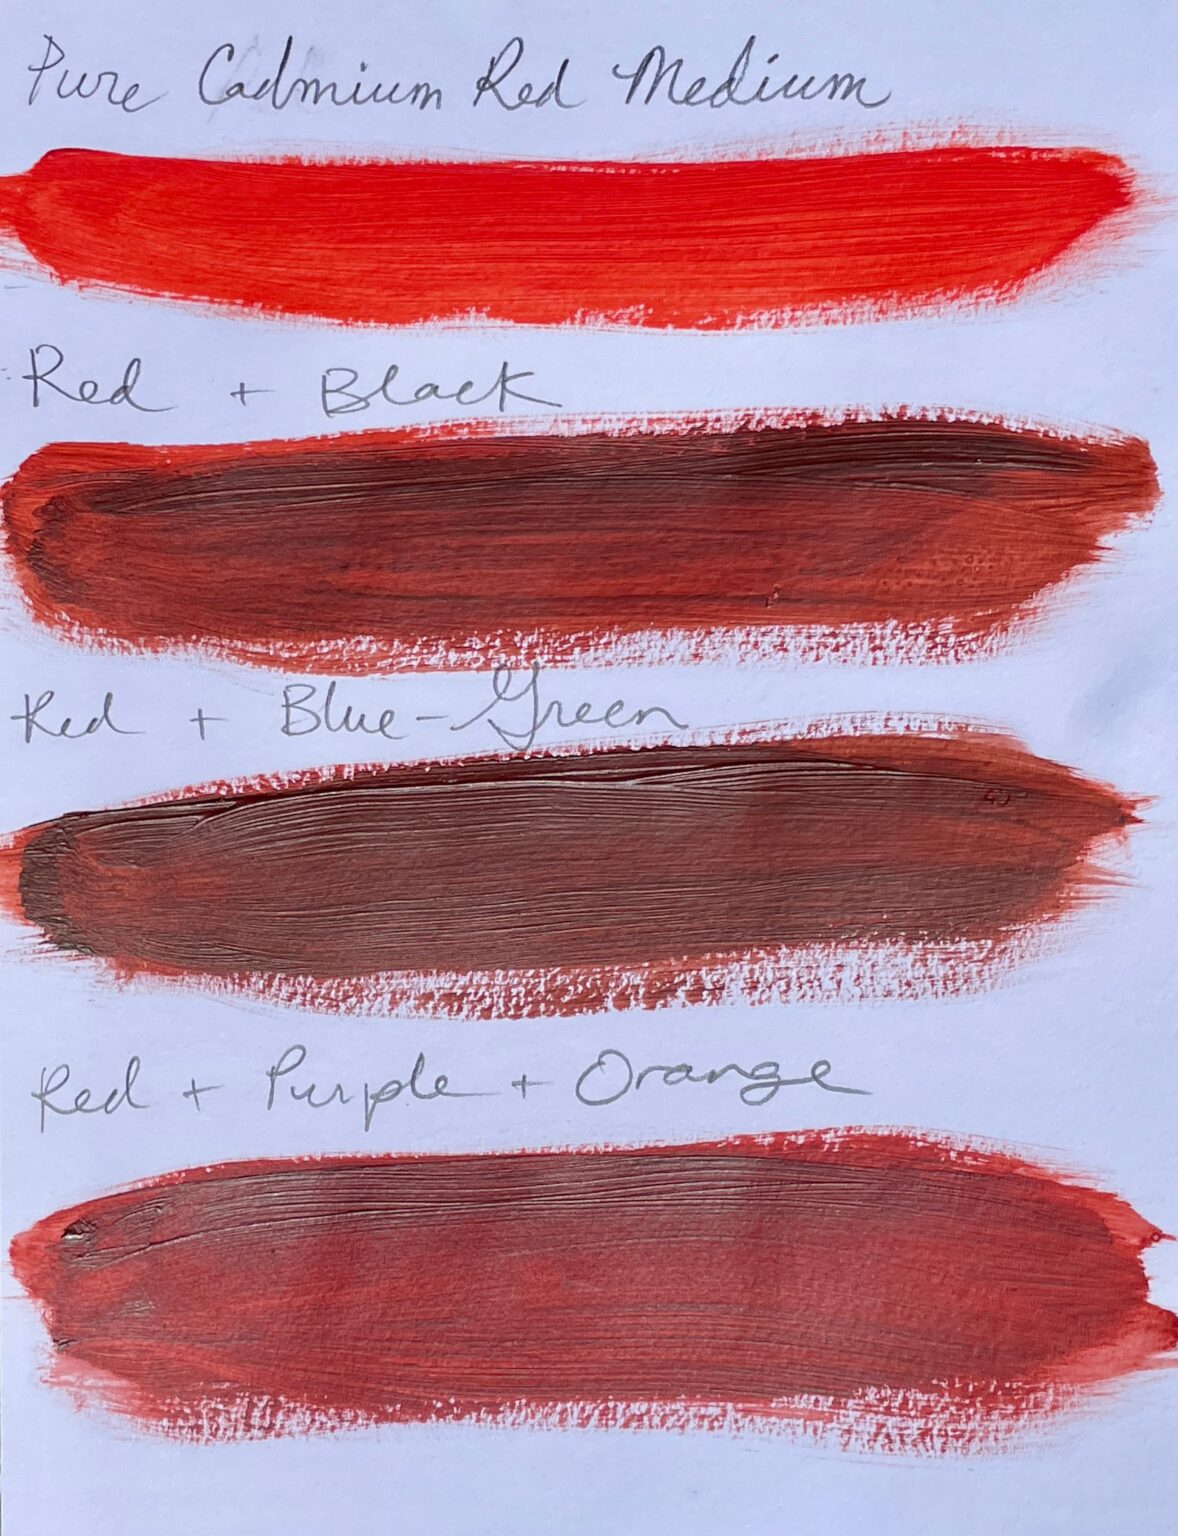 Pure Cadmium Red Medium
Red + Black
Red + Blue-Green
Red + Purple + Orange